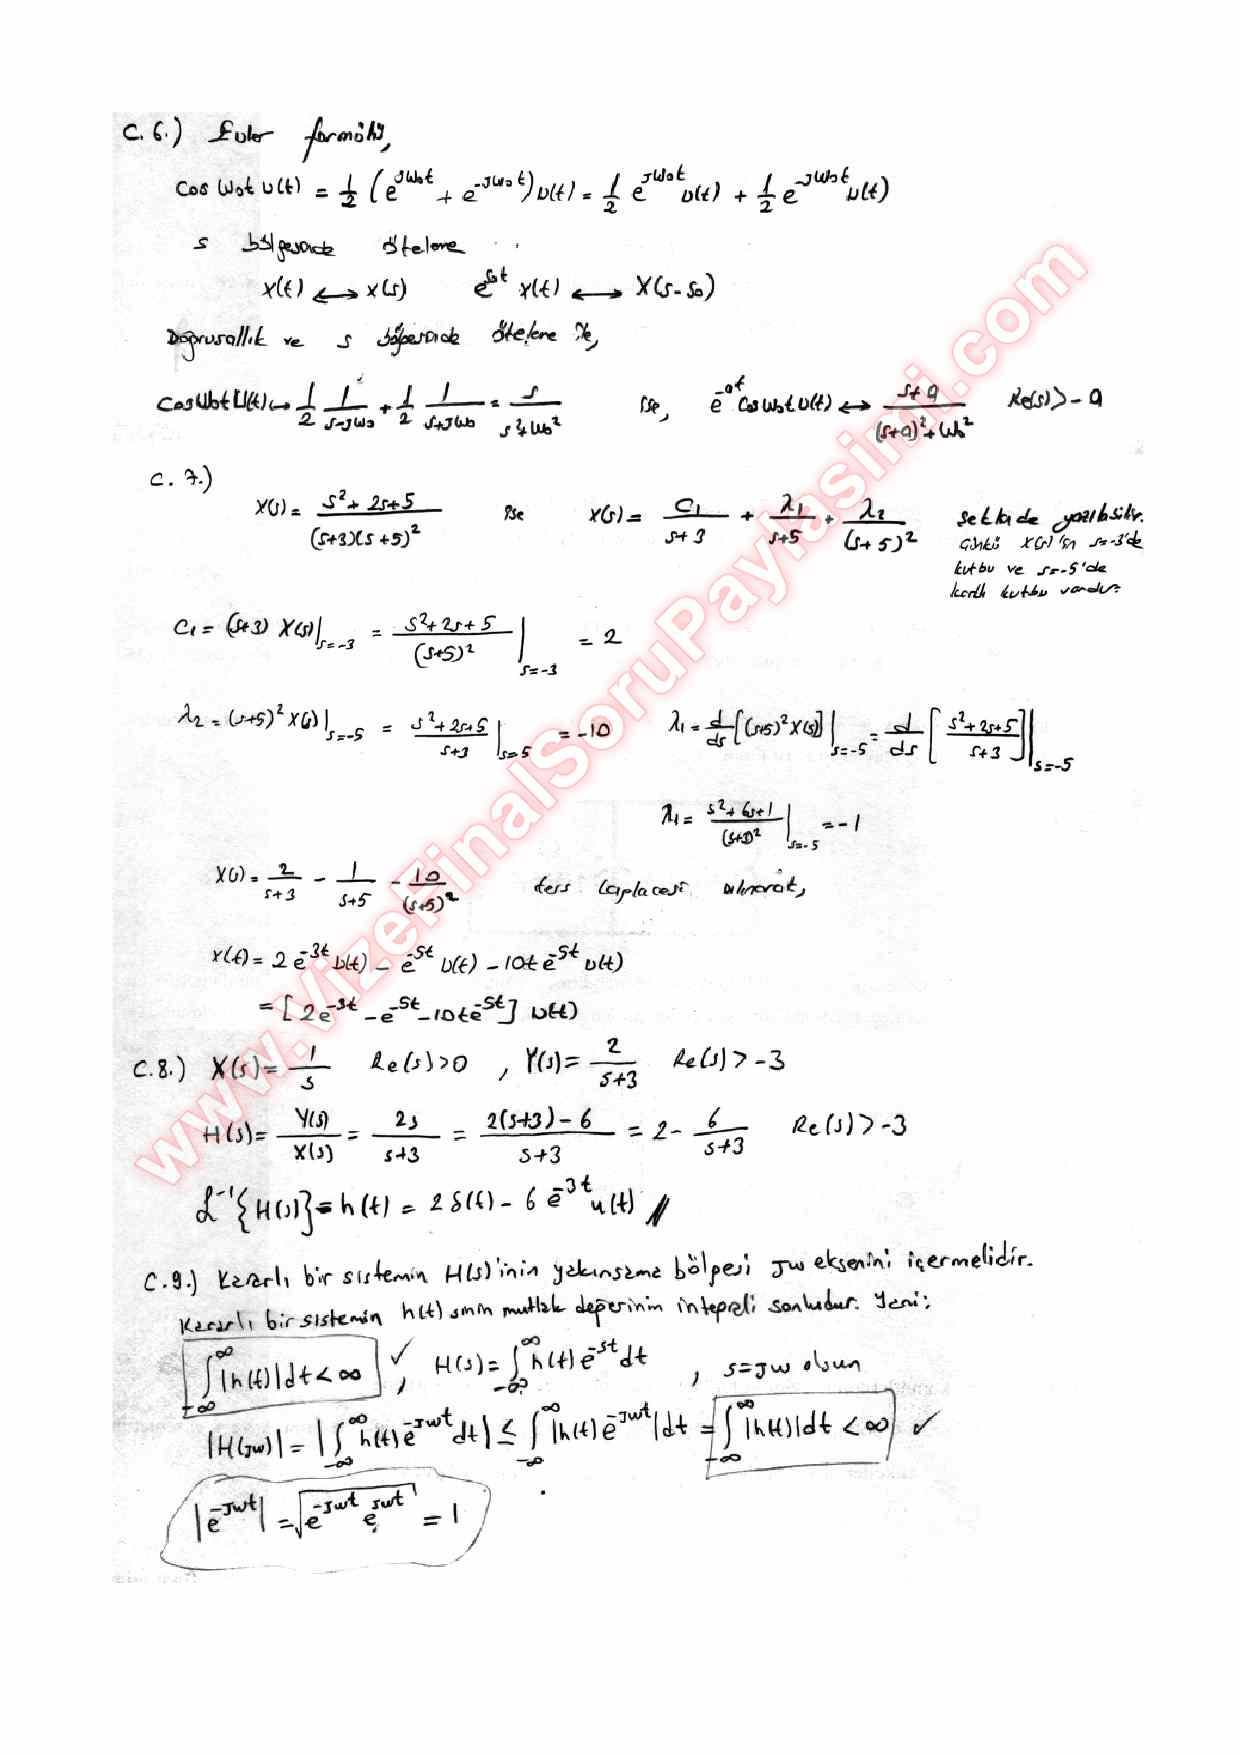 C.6.) Euler formülü,
Cos ω₀t u(t) = 1/2 (e^{jω₀t} + e^{-jω₀t}) u(t) = 1/2 e^{jω₀t} u(t) + 1/2 e^{-jω₀t} u(t)
s bölgesinde öteleme
x(t) ↔ X(s) e^{s₀t} x(t) ↔ X(s-s₀)
Doğrusallık ve s bölgesinde öteleme ile,
Cosω₀t u(t) ↔ 1/2 1/(s-jω₀) + 1/2 1/(s+jω₀) = s/(s²+ω₀²) ise, e^{-at} Cosω₀t u(t) ↔ (s+a)/((s+a)²+ω₀²) Re(s)>-a
C.7.)
X(s) = (s²+2s+5)/((s+3)(s+5)²) ise X(s) = C₁/(s+3) + λ₁/(s+5) + λ₂/(s+5)² şeklinde yazılabilir.
Çünkü X(s)'in s=-3'de
kutbu ve s=-5'de
katlı kutbu vardır.
C₁ = (s+3) X(s)|_{s=-3} = (s²+2s+5)/(s+5)² |_{s=-3} = 2
λ₂ = (s+5)² X(s)|_{s=-5} = (s²+2s+5)/(s+3) |_{s=-5} = -10 λ₁ = d/ds [(s+5)² X(s)]|_{s=-5} = d/ds [(s²+2s+5)/(s+3)]|_{s=-5}
λ₁ = (s²+6s+1)/(s+3)² |_{s=-5} = -1
X(s) = 2/(s+3) - 1/(s+5) - 10/(s+5)² ters laplacesi alınarak,
x(t) = 2e^{-3t} u(t) - e^{-5t} u(t) - 10te^{-5t} u(t)
= [2e^{-3t} - e^{-5t} - 10te^{-5t}] u(t)
C.8.) X(s) = 1/s Re(s)>0 , Y(s) = 2/(s+3) Re(s)>-3
H(s) = Y(s)/X(s) = 2s/(s+3) = (2(s+3)-6)/(s+3) = 2 - 6/(s+3) Re(s)>-3
ℒ⁻¹{H(s)} = h(t) = 2δ(t) - 6e^{-3t} u(t) //
C.9.) Kararlı bir sistemin H(s)'inin yakınsama bölgesi jw eksenini içermelidir.
Kararlı bir sistemin h(t) sinin mutlak değerinin integrali sonludur. Yani:
∫_{-∞}^{∞} |h(t)|dt < ∞ ✓, H(s) = ∫_{-∞}^{∞} h(t) e^{-st} dt , s=jw olsun
|H(jw)| = |∫_{-∞}^{∞} h(t) e^{-jwt} dt| ≤ ∫_{-∞}^{∞} |h(t) e^{-jwt}| dt = ∫_{-∞}^{∞} |h(t)|dt < ∞ ✓
|e^{-jwt}| = √(e^{-jwt} e^{jwt}) = 1
www.VizeFinalSoruPaylasimi.com